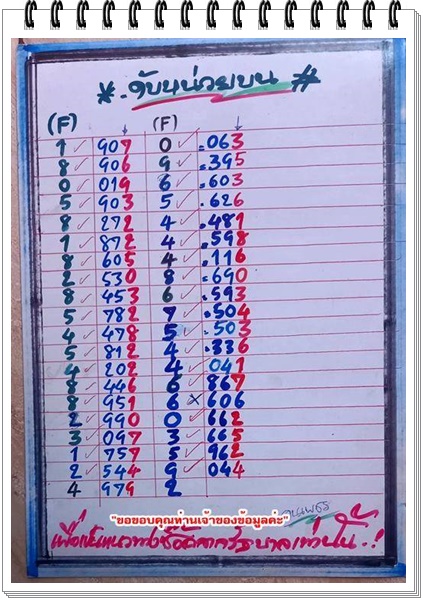 *.ดับหน่วยบน #
(F) (F)
1 ✓ 907 0 ✓ .063
8 ✓ 906 9 ✓ .395
0 ✓ 019 6 ✓ .603
5 ✓ 903 5 ✓ .626
8 ✓ 272 4 ✓ .481
1 ✓ 872 4 ✓ .598
8 ✓ 605 4 ✓ .116
2 ✓ 530 8 ✓ .690
8 ✓ 453 6 ✓ .593
5 ✓ 782 7 ✓ .504
4 ✓ 478 5 ✓ .503
5 ✓ 812 4 ✓ .336
4 ✓ 202 4 ✓ 041
8 ✓ 446 6 ✓ 867
8 ✓ 951 6 × 606
2 ✓ 990 0 ✓ 662
3 ✓ 097 3 ✓ 665
1 ✓ 757 5 ✓ 962
2 ✓ 544 9 ✓ 044
4 979 2
"ขอขอบคุณท่านเจ้าของข้อมูลค่ะ"
เพื่อเป็นแนวทางซื้อสลากรัฐบาลเท่านั้น.!